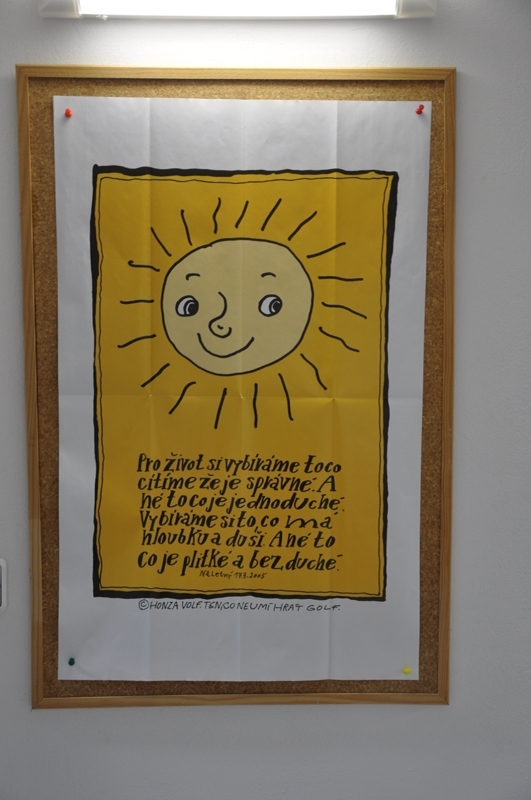 Pro život si vybíráme to co
cítíme že je správné. A
né to co je jednoduché.
Vybíráme si to, co má
hloubku a duši. A né to
co je plitké a bez duché.
Na Letný 17.3.2005
©HONZA VOLF. TEN, CO NEUMÍ HRÁT GOLF.